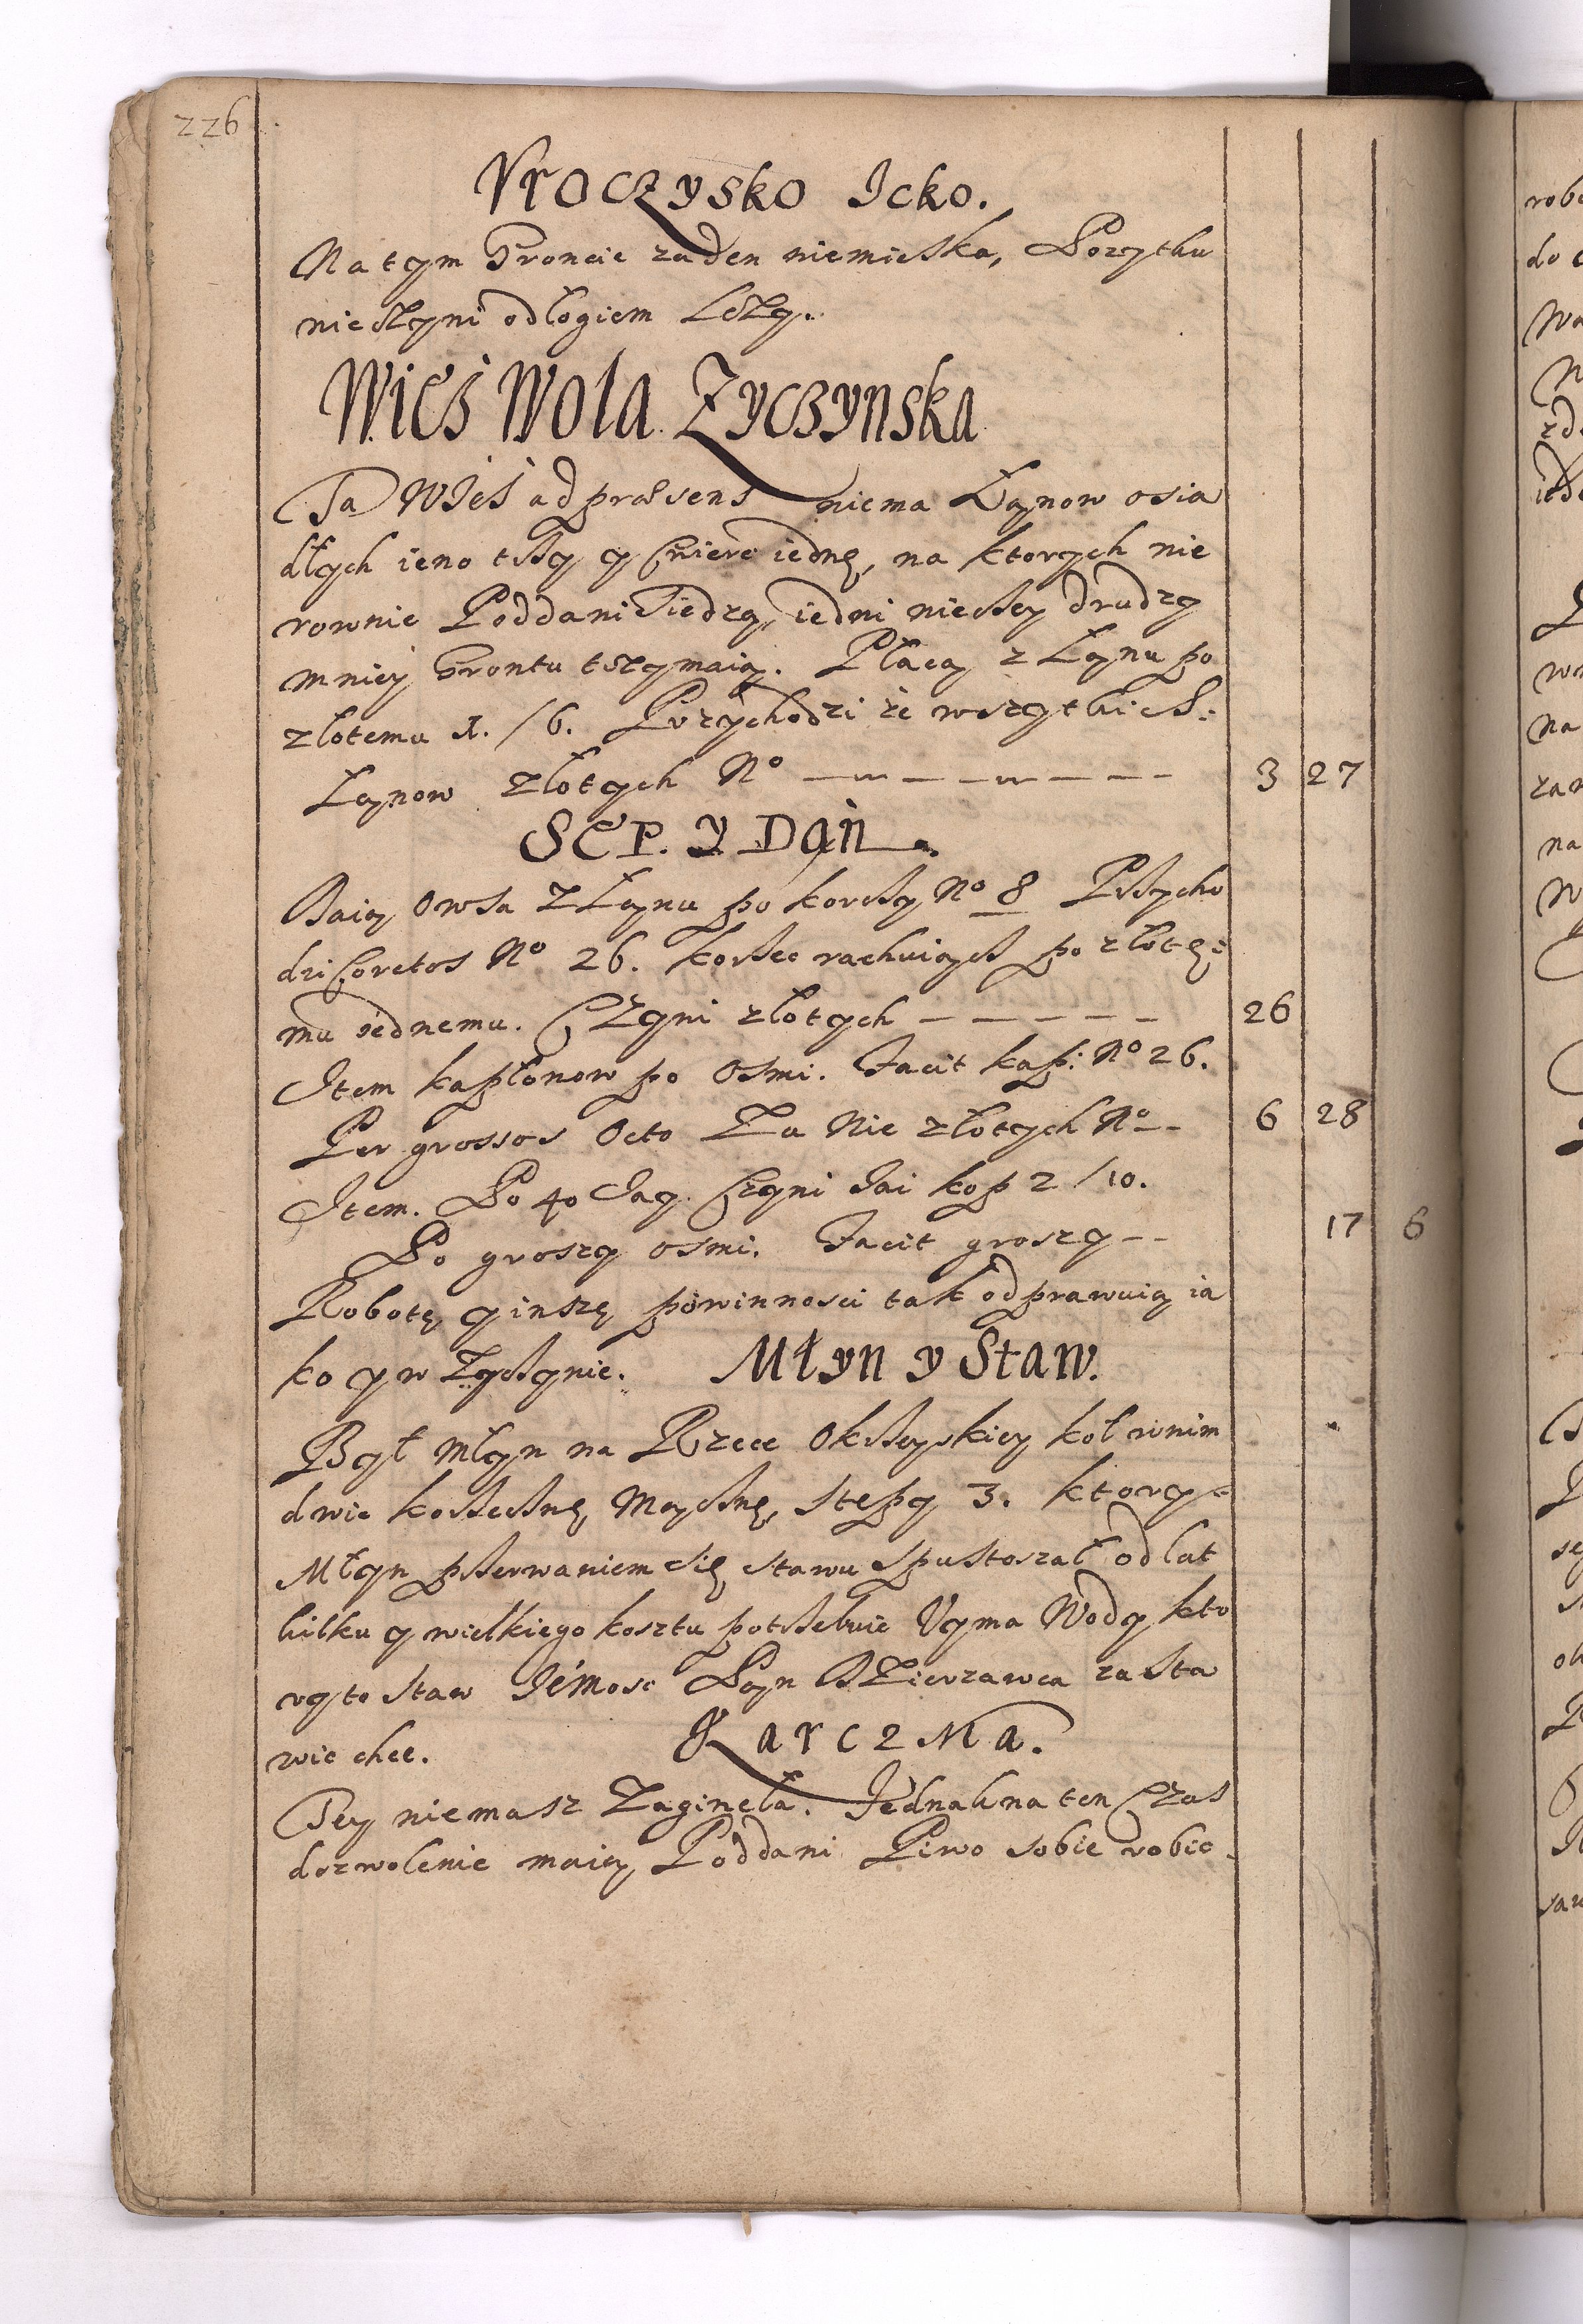 226
Vroczysko Icko.
Na tym Groncie żaden niemieska, Pozytku
nieczyni odłogiem Leży.
Wieś Wola Zyczynska
Ta Wieś ad præsens niema Łanow osia
dłych ieno trzy y Cwierc iednę, na ktorych nie
rownie Poddani Siedzą, iedni więcey drudzy
mniey Grontu trzymaią. Płacą z Łanu po
złotemu 1. /6. Przychodzi że wszytkich
Łanow złotych No 3 27
SEP. Y Dań.
Daią Owsa z Łanu po korcy No 8 Przycho
dzi Coretos No 26. korzec rachuiąc po złote=
mu iednemu. Czyni złotych 26
Item kapłonow po Osmi. Facit kap: No 26.
Per grossos Octo Za Nie złotych No 6 28
Item. Po 40 Iay. Czyni Iai kop 2 /10.
Po groszy osmi. Facit groszy 17 6
Robotę y inszę powinnosci tak odprawuią ia
ko y w Życzynie. Młyn y Staw.
Był Młyn na Rzece Okrzeyskiey koł w nim
dwie korzecznę Mącznę, Stępy 3. ktory=
Młyn przerwaniem się stawu spustoszał od lat
kilku y wielkiego kosztu potrzebuie Vyma Wody kto
ry to staw Iemosc Pan Dzierzawca za sta
wie chce. Karczma.
Tey niemasz Zagineła. Iednak na ten Czas
dozwolenie maią Poddani Piwo sobie robic.